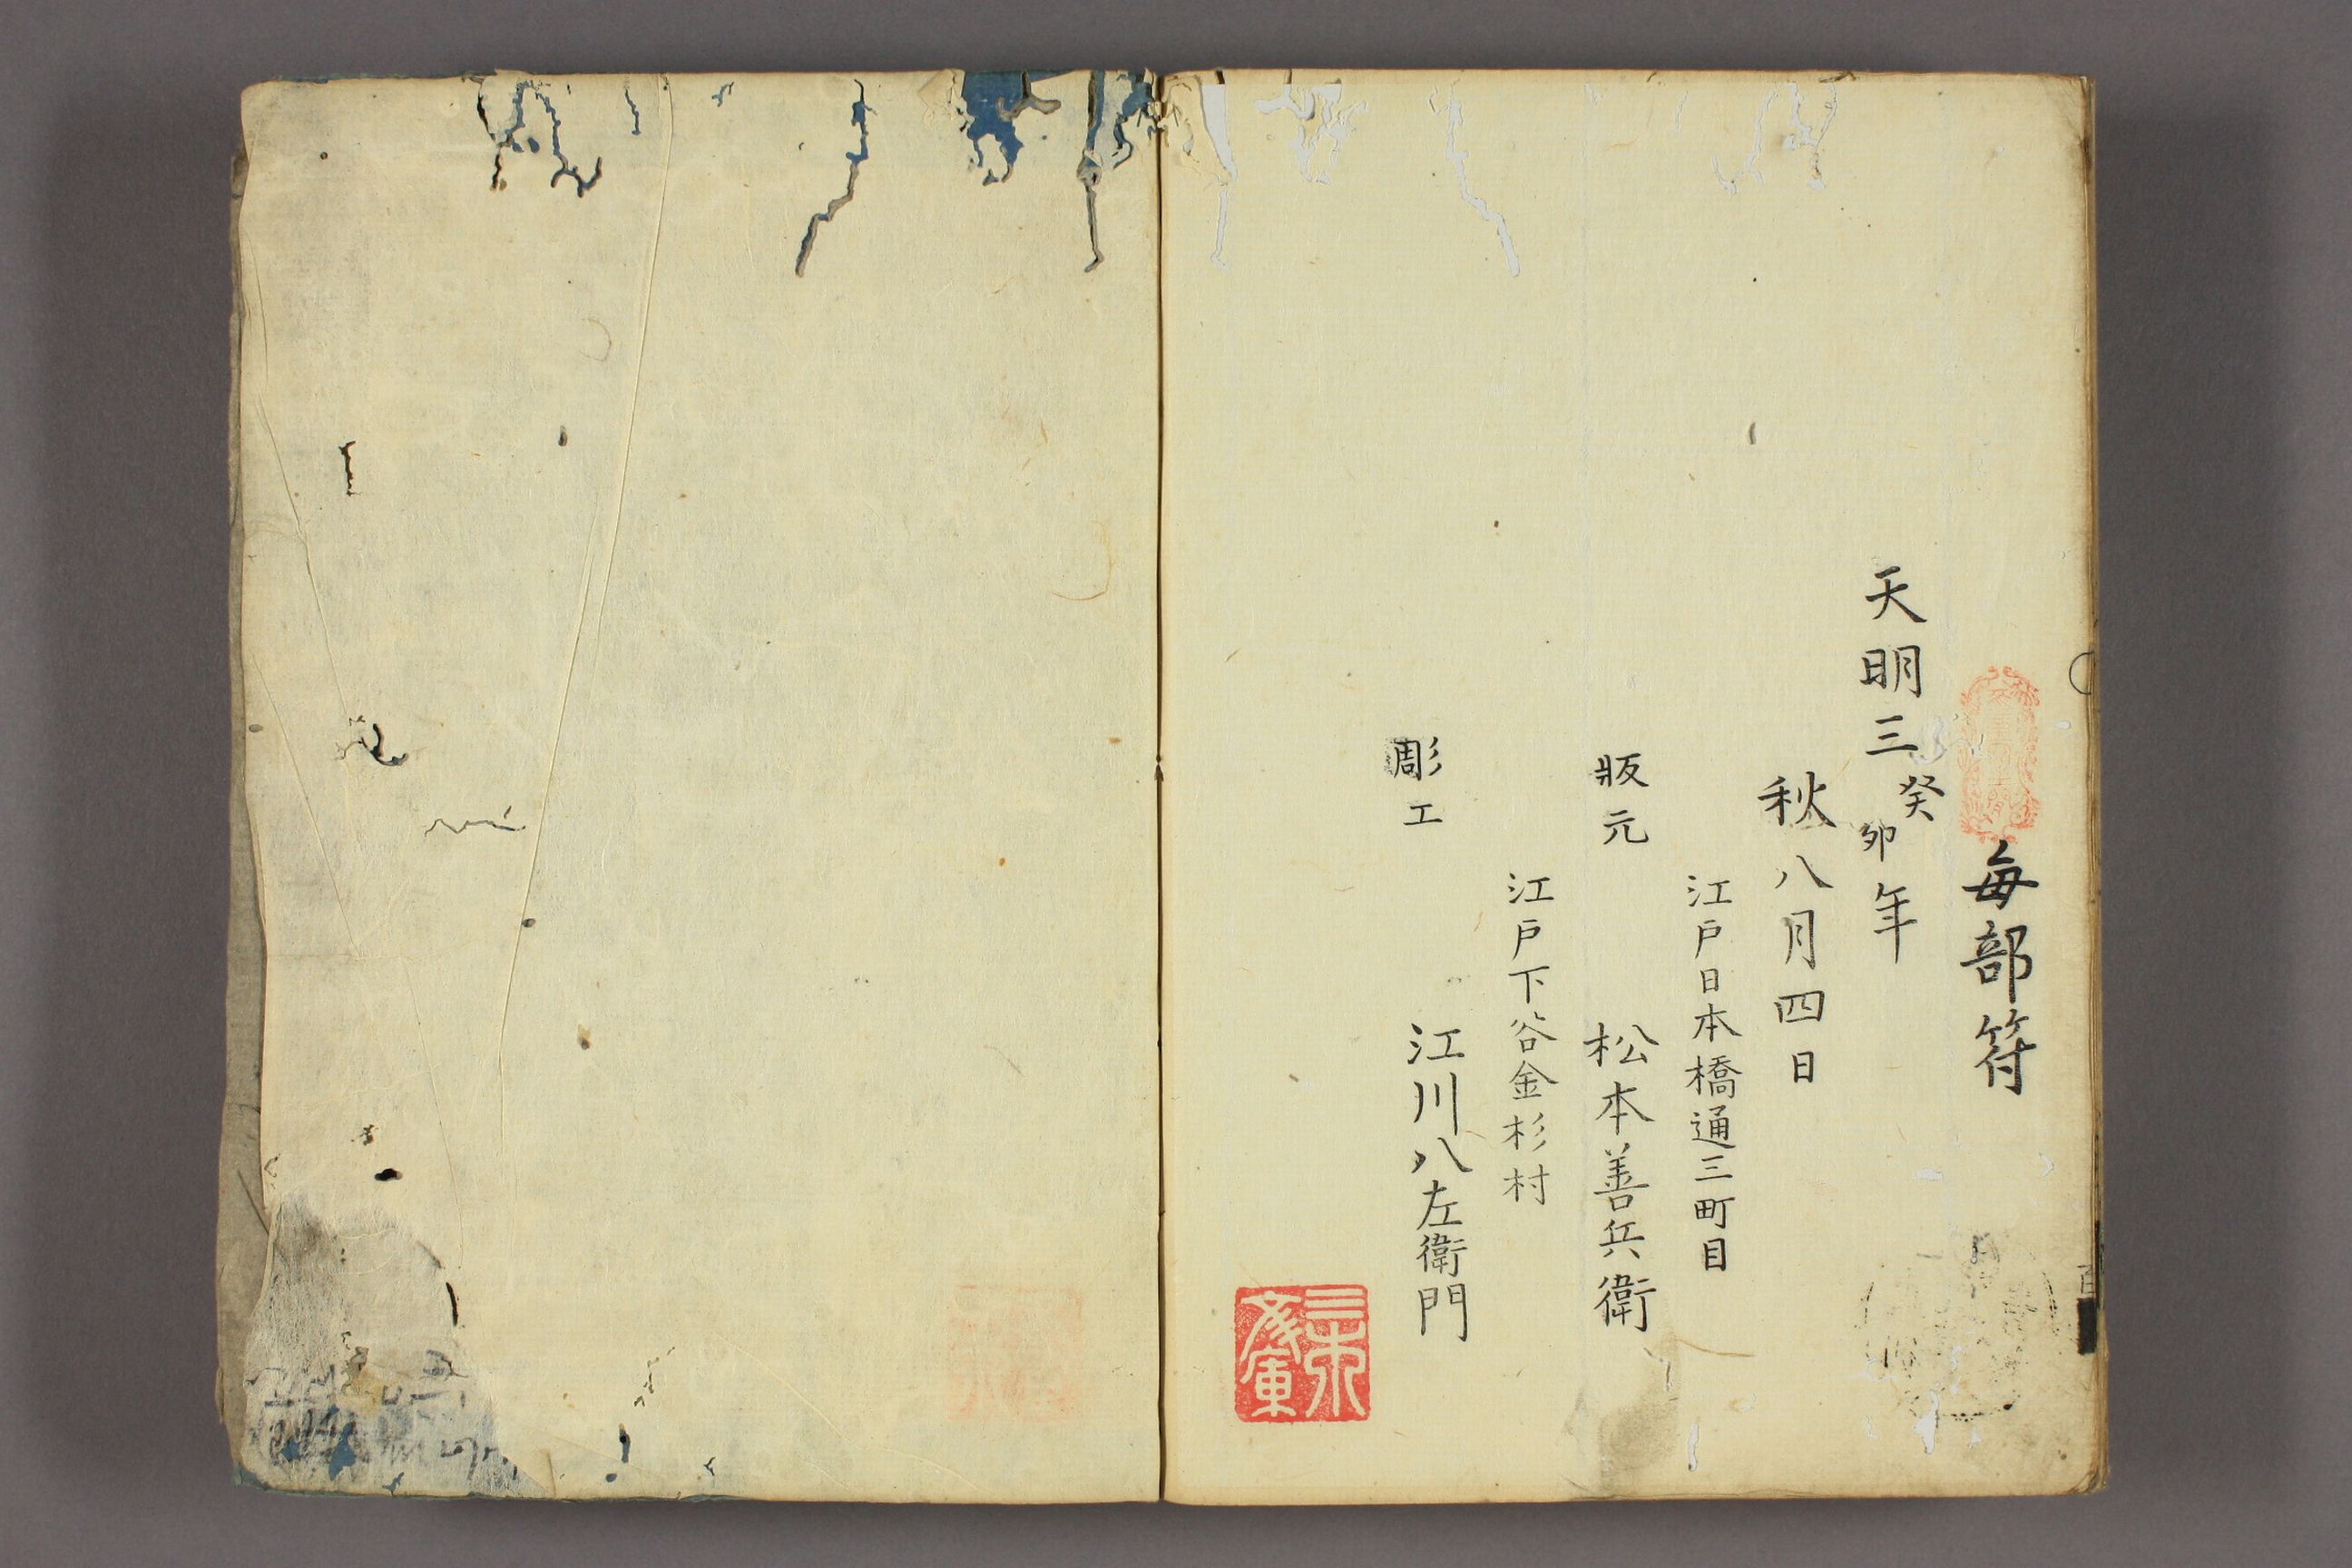 毎部符
天明三癸卯年
秋八月四日
江戸日本橋通三町目
版元 松本善兵衛
江戸下谷金杉村
彫工 江川八左衛門